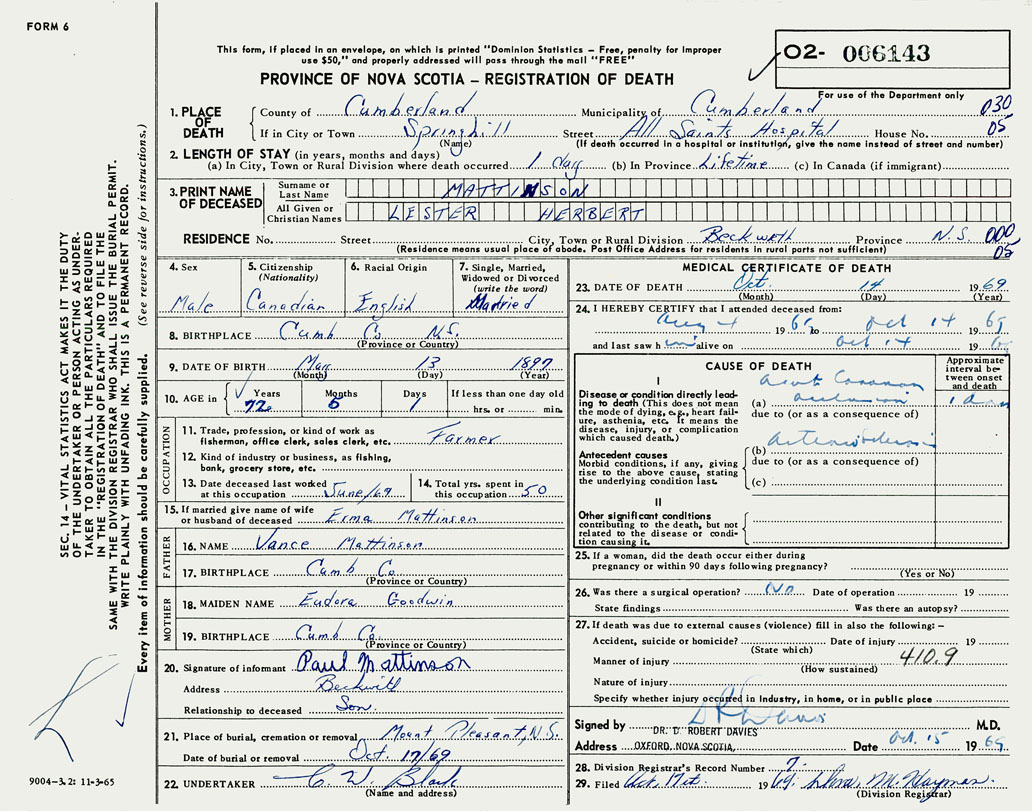 FORM 6
This form, if placed in an envelope, on which is printed "Dominion Statistics – Free, penalty for improper
use $50," and properly addressed will pass through the mail "FREE"
PROVINCE OF NOVA SCOTIA – REGISTRATION OF DEATH
O2- 006143
For use of the Department only
1. PLACE OF DEATH County of Cumberland Municipality of Cumberland 030
If in City or Town Springhill Street All Saints Hospital House No. 05
(Name) (If death occurred in a hospital or institution, give the name instead of street and number)
2. LENGTH OF STAY (in years, months and days)
(a) In City, Town or Rural Division where death occurred 1 day (b) In Province Lifetime (c) In Canada (if immigrant)
3. PRINT NAME OF DECEASED
Surname or Last Name MATTINSON
All Given or Christian Names LESTER HERBERT
RESIDENCE No. Street City, Town or Rural Division Beckwith Province N.S. 000
(Residence means usual place of abode. Post Office Address for residents in rural parts not sufficient) 05
4. Sex Male
5. Citizenship (Nationality) Canadian
6. Racial Origin English
7. Single, Married, Widowed or Divorced (write the word) Married
8. BIRTHPLACE Cumb Co. N.S.
(Province or Country)
9. DATE OF BIRTH Mar 13 1897
(Month) (Day) (Year)
10. AGE in Years Months Days If less than one day old
72 1 hrs. or min.
OCCUPATION
11. Trade, profession, or kind of work as
fisherman, office clerk, sales clerk, etc. Farmer
12. Kind of industry or business, as fishing,
bank, grocery store, etc.
13. Date deceased last worked at this occupation June/69
14. Total yrs. spent in this occupation 50
15. If married give name of wife
or husband of deceased Erma Mattinson
FATHER
16. NAME Vance Mattinson
17. BIRTHPLACE Cumb Co.
(Province or Country)
MOTHER
18. MAIDEN NAME Eudora Goodwin
19. BIRTHPLACE Cumb Co.
(Province or Country)
20. Signature of informant Paul Mattinson
Address Beckwith
Relationship to deceased Son.
21. Place of burial, cremation or removal Mount Pleasant, N.S.
Date of burial or removal Oct. 17/69
22. UNDERTAKER
(Name and address)
MEDICAL CERTIFICATE OF DEATH
23. DATE OF DEATH Oct. 14 1969
(Month) (Day) (Year)
24. I HEREBY CERTIFY that I attended deceased from:
Aug 4 196 to Oct 14 1969
and last saw h im alive on Oct 14 19
CAUSE OF DEATH
Approximate interval between onset and death
I
Disease or condition directly leading to death (This does not mean
the mode of dying, e.g., heart failure, asthenia, etc. It means the
disease, injury, or complication
which caused death.)
(a) occlusion 1
due to (or as a consequence of)
Antecedent causes
Morbid conditions, if any, giving
rise to the above cause, stating
the underlying condition last.
(b)
due to (or as a consequence of)
(c)
II
Other significant conditions
contributing to the death, but not
related to the disease or condition causing it.
25. If a woman, did the death occur either during
pregnancy or within 90 days following pregnancy?
(Yes or No)
26. Was there a surgical operation? No Date of operation 19
State findings Was there an autopsy?
27. If death was due to external causes (violence) fill in also the following: –
Accident, suicide or homicide? Date of injury 19
(State which)
Manner of injury 410.9
(How sustained)
Nature of injury
Specify whether injury occurred in Industry, in home, or in public place
Signed by M.D.
DR. D. ROBERT DAVIES
Address OXFORD, NOVA SCOTIA, Date Oct. 15 1969
28. Division Registrar's Record Number 7.
29. Filed Oct. 19 69.
(Division Registrar)
SEC. 14 – VITAL STATISTICS ACT MAKES IT THE DUTY
OF THE UNDERTAKER OR PERSON ACTING AS UNDER-
TAKER TO OBTAIN ALL THE PARTICULARS REQUIRED
IN THE "REGISTRATION OF DEATH" AND TO FILE THE
SAME WITH THE DIVISION REGISTRAR WHO SHALL ISSUE THE BURIAL PERMIT.
WRITE PLAINLY WITH UNFADING INK. THIS IS A PERMANENT RECORD.
Every item of information should be carefully supplied. (See reverse side for instructions.)
9004-3.2: 11-3-65